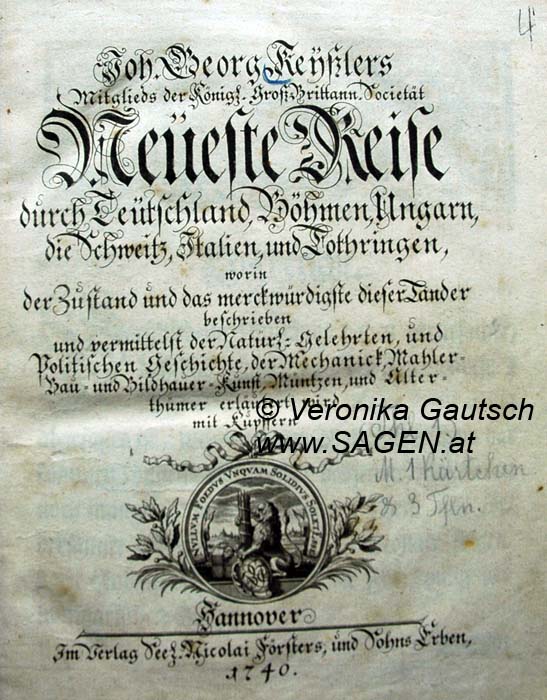 4
Joh. Georg Keyßlers
Mitglieds der Königl. Groß-Brittann. Societät
Neüeste Reise
durch Teütschland, Böhmen, Ungarn,
die Schweitz, Italien, und Lothringen,
worin
der Zustand und das merckwürdigste dieser Länder
beschrieben
und vermittelst der Natürl- Gelehrten, und
Politischen Geschichte, der Mechanick, Mahler-
Bau- und Bildhauer-Kunst, Müntzen, und Alter-
thümer erläutert wird
mit Kupffern
© Veronika Gautsch
www.SAGEN.at
M. 1 Kärtchen
& 3 Tfln.
NULLUM FOEDUS UNQUAM SOLIDIUS
Hannover
Im Verlag Seel. Nicolai Försters, und Sohns Erben,
1740.